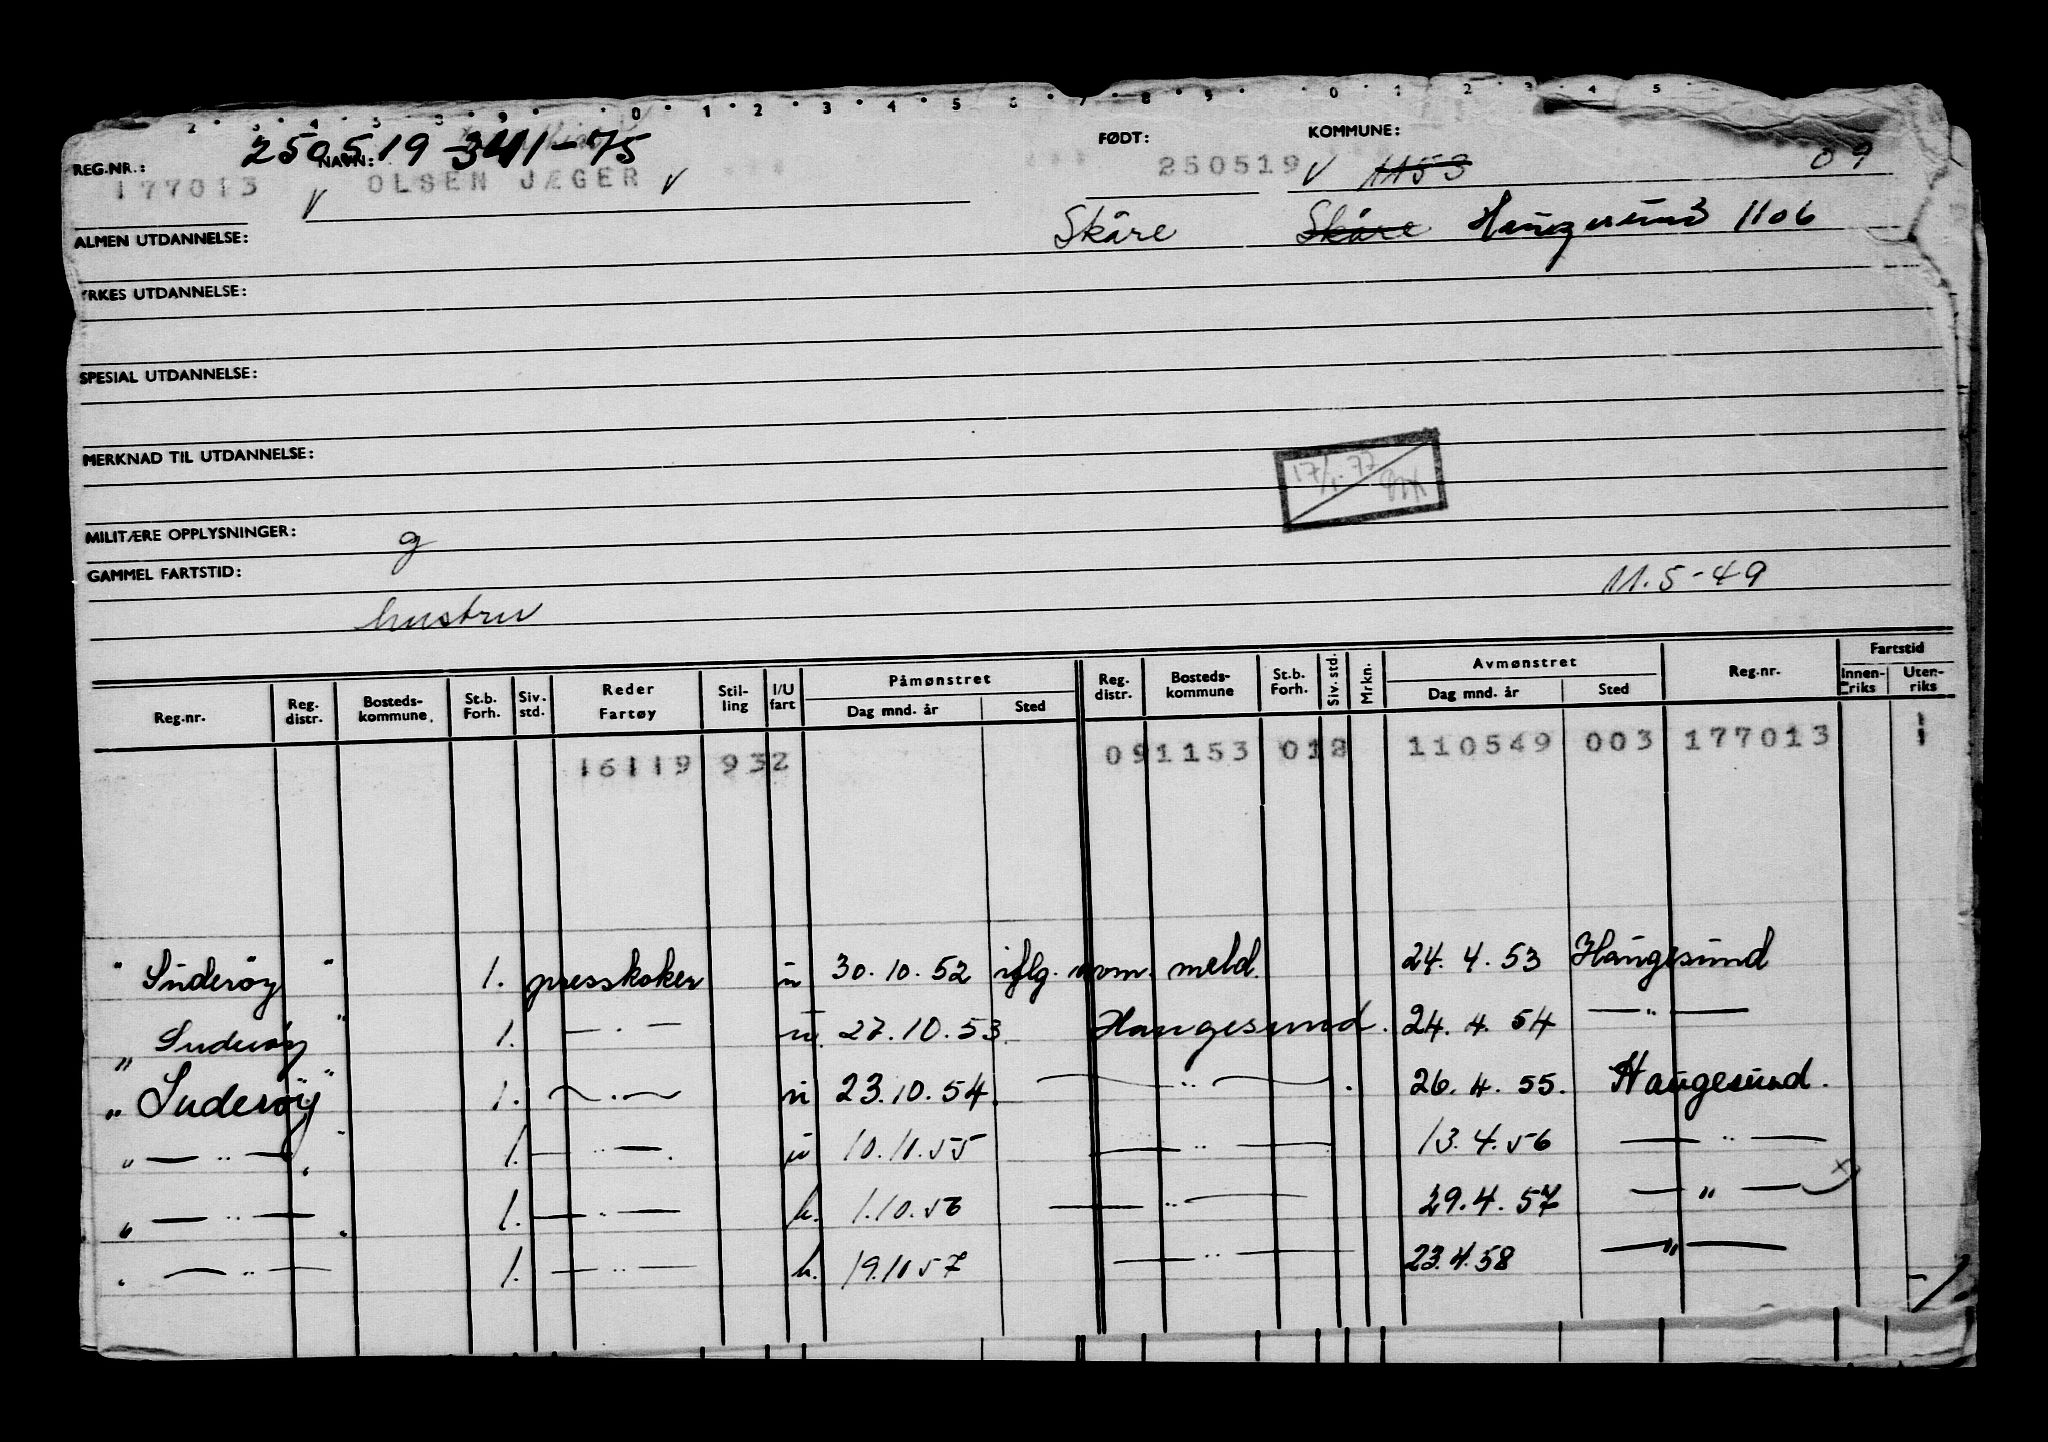 2 3 4 5 8 9 0 1 2 3 4 5 6 7 8 9 0 1 2 3 4 5
REG.NR.: 250519 NAVN: 3411-75 FØDT: KOMMUNE:
177013 OLSEN JÆGER 250519 1153 09
ALMEN UTDANNELSE: Skåre Skåre Haugesund 1106
YRKES UTDANNELSE:
SPESIAL UTDANNELSE:
MERKNAD TIL UTDANNELSE:
17/1.77
MILITÆRE OPPLYSNINGER: g
GAMMEL FARTSTID:
hustru 11.5-49
Påmønstret Avmønstret Fartstid
Reg.nr. Reg. distr. Bosteds- kommune. St.b. Forh. Siv. std. Reder Fartøy Stil- ling I/U fart Dag mnd. år Sted Reg. distr. Bosteds- kommune St.b. Forh. Siv. std. Mrkn. Dag mnd. år Sted Reg.nr. Innen- riks Uten- riks
16119 932 091153 012 110549 003 177013 1
" Suderøy " 1. presskoker u 30.10.52 iflg. mom. meld. 24.4.53 Haugesund
" Suderøy " 1. — . — u. 27.10.53. Haugesund. 24.4.54 — " —
" Suderøy " 1. — . — u 23.10.54. — " — . 26.4.55. Haugesund.
" — " — " 1. — " — . u 10.11.55 — " — 13.4.56 — " —
" — " — " 1. — " — h. 1.10.56 — " — 29.4.57 — " — x)
" — " — 1. — " — h. 19.10 57 — " — 23.4.58 — " —